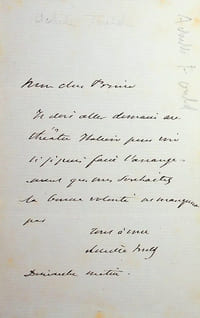 Mon cher Prince
Je dois aller demain au
théâtre Italien pour voir
si je puis faire l'arrange-
ment que vous souhaitez
la bonne volonté ne manquera
pas
tout à vous
Dimanche matin.